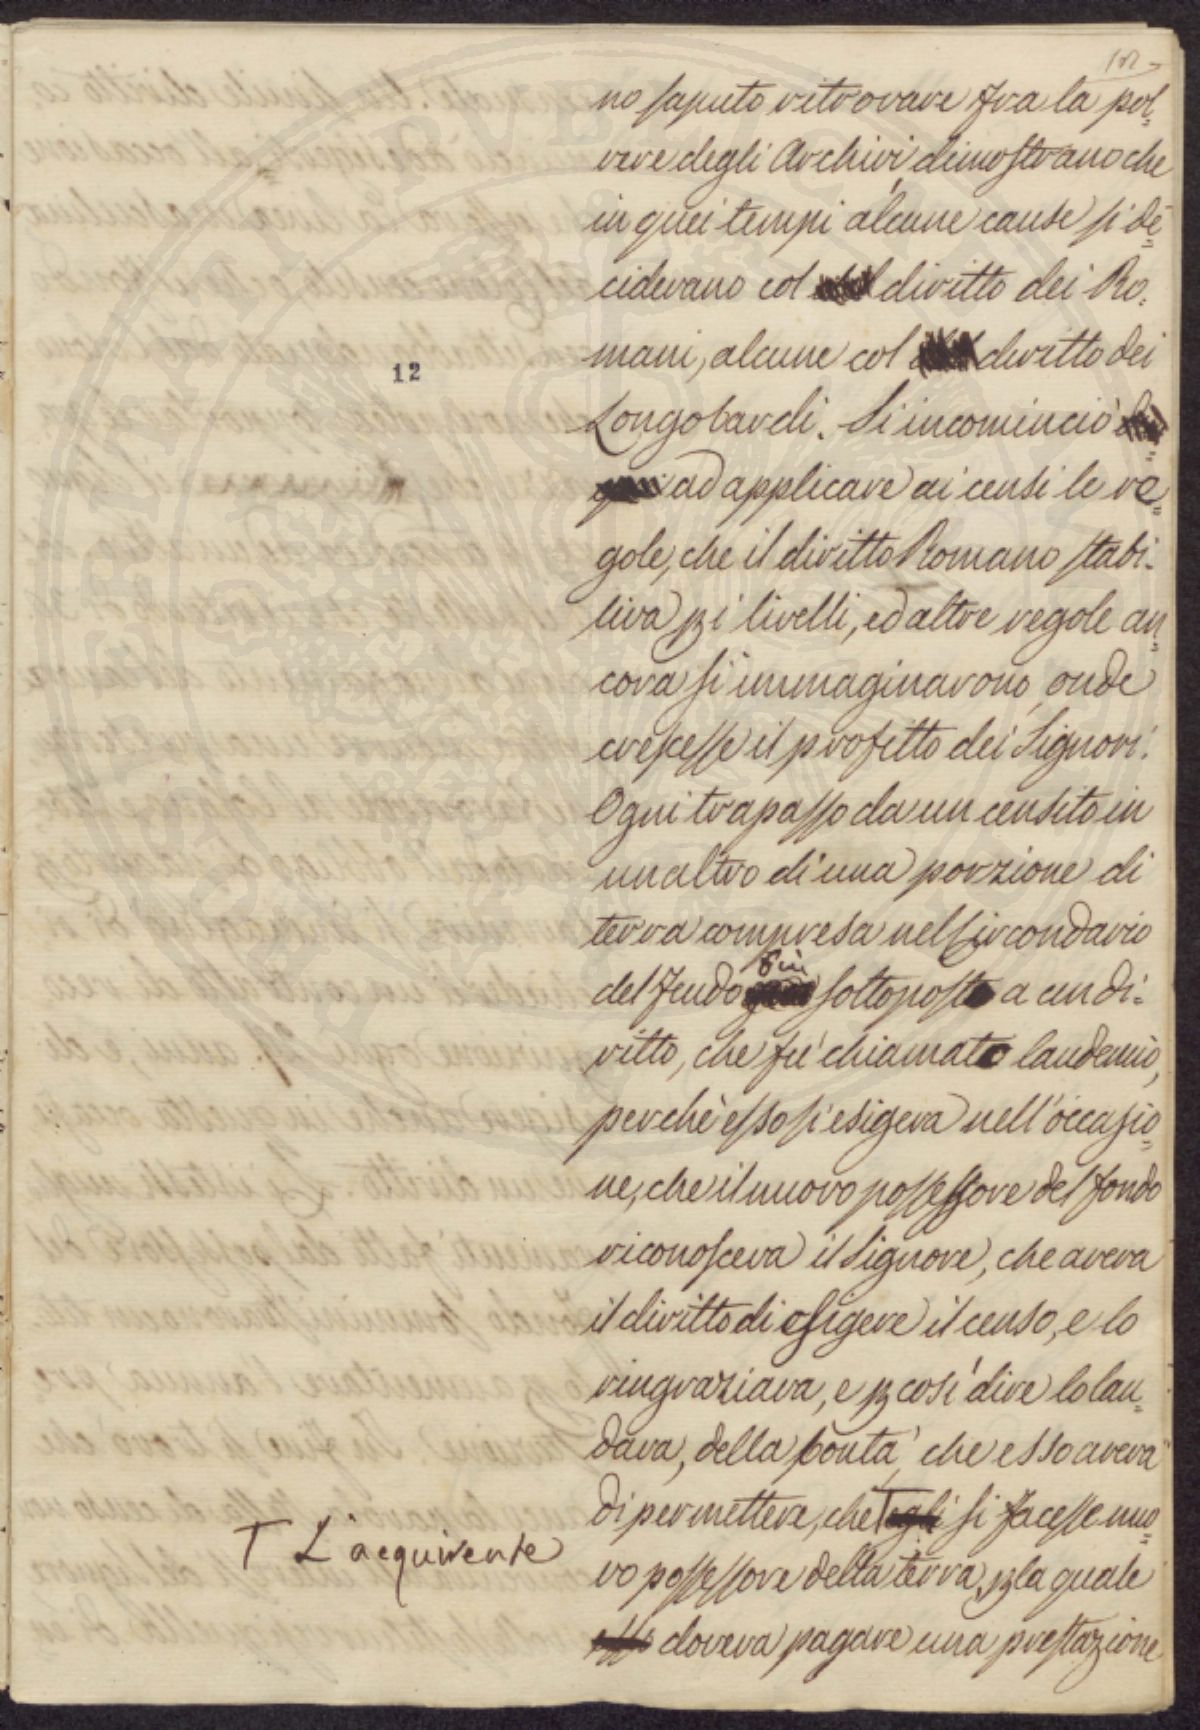 12
no saputo ritrovare fra la pol=
vere degli Archivi dimostrano che
in quei tempi alcune cause si de=
cidevano col diritto dei Ro=
mani, alcune col diritto dei
Longobardi. Si incominciò
ad applicare ai censi le re=
gole, che il diritto Romano stabi=
liva p i livelli, ed altre regole an=
cora si immaginarono, onde
crescesse il profitto dei Signori.
Ogni trapasso da un censito in
un altro di una porzione di
terra compresa nel Circondario
del feudo fù sottoposto a un di=
ritto, che fù chiamato laudemio,
perchè esso si esigeva nell'occasio=
ne, che il nuovo possessore del fondo
riconosceva il Signore, che aveva
il diritto di esigere il censo, e lo
ringraziava, e p così dire lo lau=
dava, della bontà, che esso aveva
di permettere, che T egli si facesse nuo=
vo possessore della terra, p la quale
esso doveva pagare una prestazione
T L'acquirente